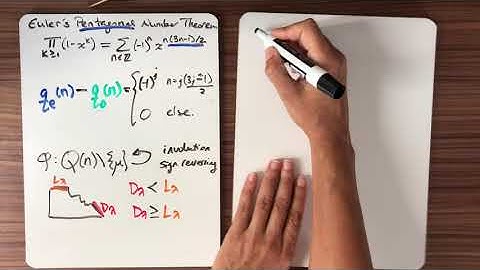 Euler's Pentagonal Number Theorem
∏_{k≥1} (1-x^k) = ∑_{n∈ℤ} (-1)^n x^{n(3n-1)/2}
q_e(n) - q_o(n) = { (-1)^j n = j(3j±1)/2
0 else.
φ: Q(n)\{μ} ↩ involution
sign reversing
Lλ Dλ < Lλ
Dλ Dλ ≥ Lλ